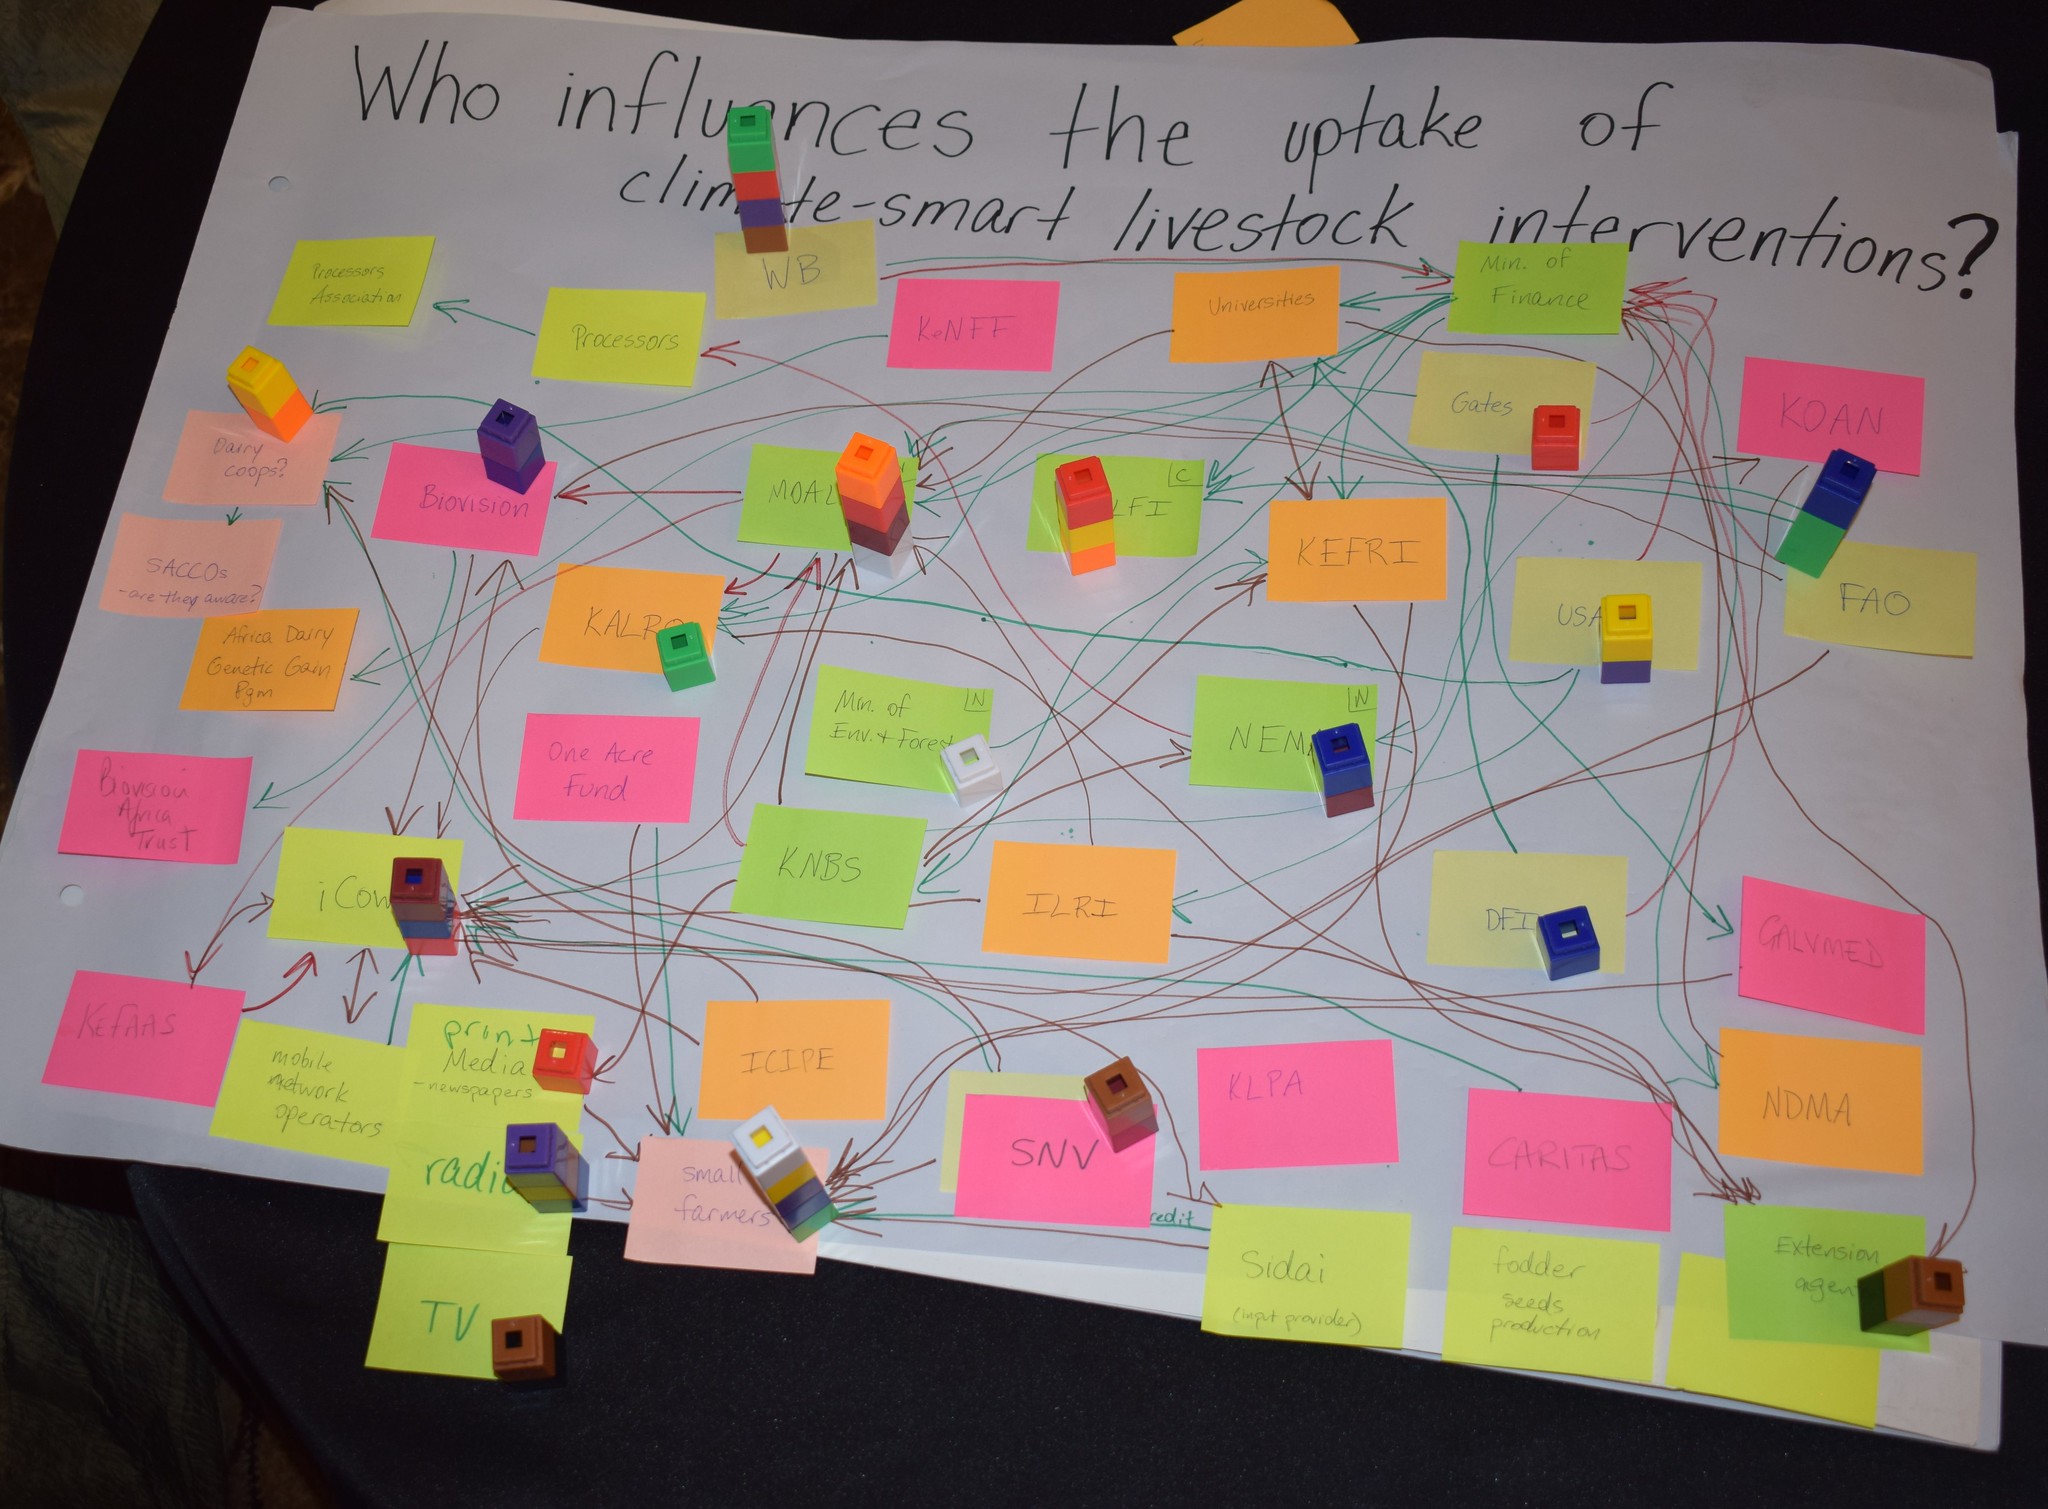 Who influences the uptake of
climate-smart livestock interventions?
WB
Processors
Association
Processors
KeNFF
Universities
Min. of
Finance
Gates
KOAN
Dairy
coops?
Biovision
MOAL
C
LFI
KEFRI
SACCOs
-are they aware?
KALRO
USA
FAO
Africa Dairy
Genetic Gain
Pgm
Min. of
Env. + Forest
N
NEMA
N
One Acre
Fund
Biovision
Africa
Trust
iCow
KNBS
ILRI
DFI
GALVMED
KEFAAS
mobile
network
operators
print
Media
-newspapers
radio
TV
ICIPE
small
farmers
SNV
KLPA
CARITAS
NDMA
redit
Sidai
(input provider)
fodder
seeds
production
Extension
agen